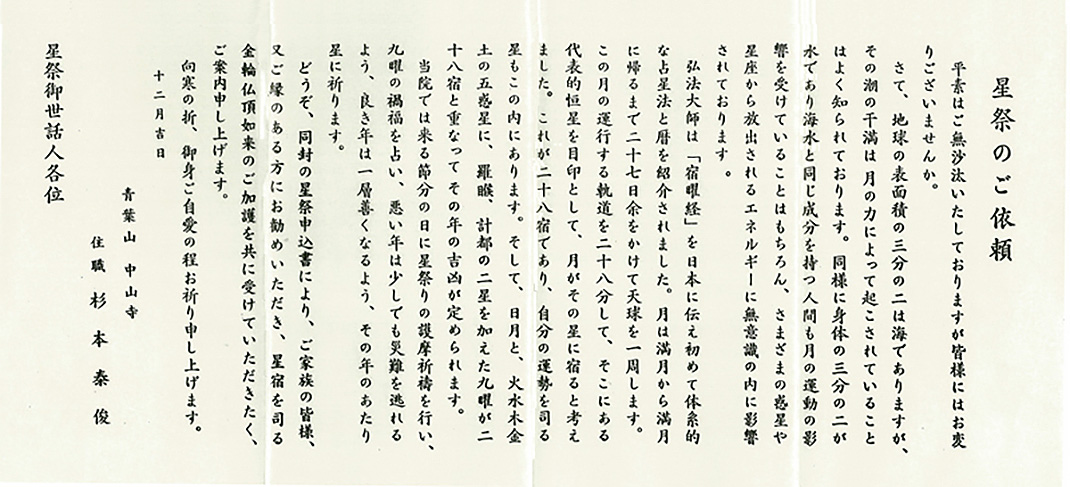 星祭のご依頼
平素はご無沙汰いたしておりますが皆様にはお変
りございませんか。
さて、地球の表面積の三分の二は海でありますが、
その潮の干満は月の力によって起こされていること
はよく知られております。同様に身体の三分の二が
水であり海水と同じ成分を持つ人間も月の運動の影
響を受けていることはもちろん、さまざまの惑星や
星座から放出されるエネルギーに無意識の内に影響
されております。
弘法大師は「宿曜経」を日本に伝え初めて体系的
な占星法と暦を紹介されました。月は満月から満月
に帰るまで二十七日余をかけて天球を一周します。
この月の運行する軌道を二十八分して、そこにある
代表的恒星を目印として、月がその星に宿ると考え
ました。これが二十八宿であり、自分の運勢を司る
星もこの内にあります。そして、日月と、火水木金
土の五惑星に、羅睺、計都の二星を加えた九曜が二
十八宿と重なってその年の吉凶が定められます。
当院では来る節分の日に星祭りの護摩祈祷を行い、
九曜の禍福を占い、悪い年は少しでも災難を逃れる
よう、良き年は一層善くなるよう、その年のあたり
星に祈ります。
どうぞ、同封の星祭申込書により、ご家族の皆様、
又ご縁のある方にお勧めいただき、星宿を司る
金輪仏頂如来のご加護を共に受けていただきたく、
ご案内申し上げます。
向寒の折、御身ご自愛の程お祈り申し上げます。
十二月吉日
青葉山 中山寺
住職 杉本泰俊
星祭御世話人各位